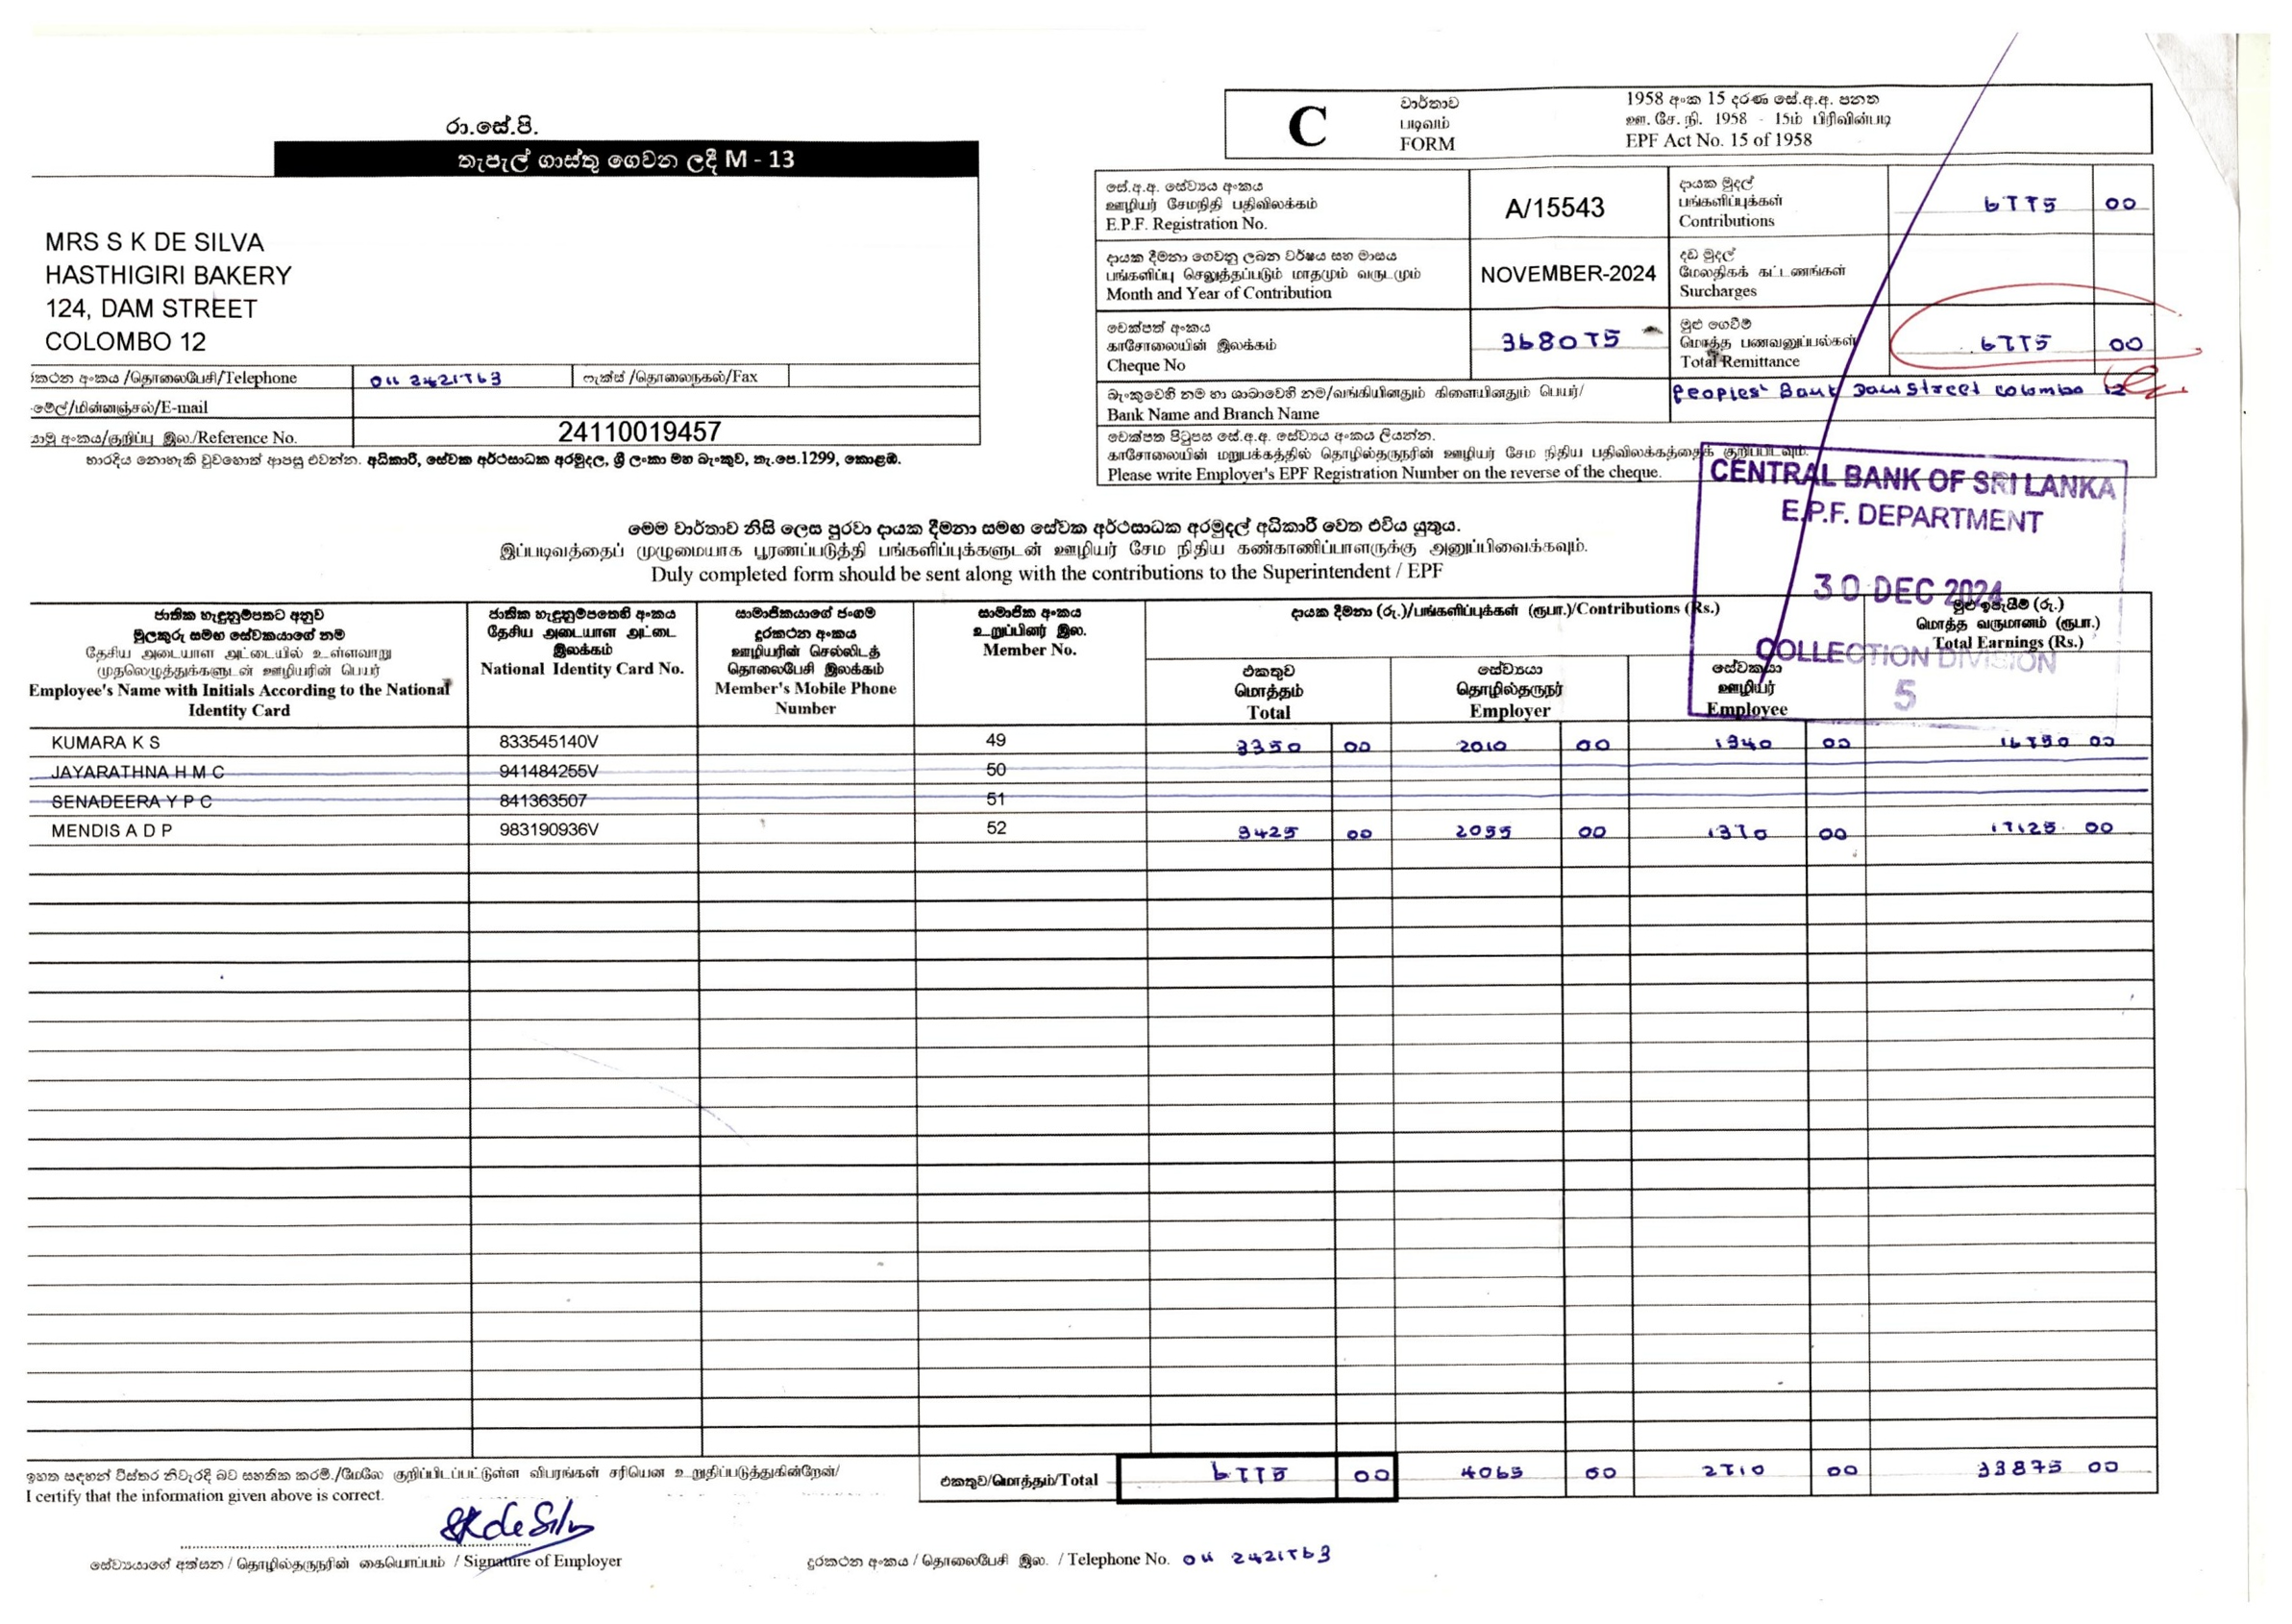 රා.සේ.පි.
තැපැල් ගාස්තු ගෙවන ලදී M - 13
MRS S K DE SILVA
HASTHIGIRI BAKERY
124, DAM STREET
COLOMBO 12
/தொலைபேசி/Telephone 011 2421763 ෆැක්ස් /தொலைநகல்/Fax
/மின்னஞ்சல்/E-mail
අංකය/குறிப்பு இல./Reference No. 24110019457
භාරදිය නොහැකි වුවහොත් ආපසු එවන්න. අධිකාරී, සේවක අර්ථසාධක අරමුදල, ශ්‍රී ලංකා මහ බැංකුව, තැ.පෙ.1299, කොළඹ.
C
වාර්තාව
படிவம்
FORM
1958 අංක 15 දරණ සේ.අ.අ. පනත
ஊ. சே. நி. 1958 - 15ம் பிரிவின்படி
EPF Act No. 15 of 1958
සේ.අ.අ. සේව්‍යය අංකය
ஊழியர் சேமநிதி பதிவிலக்கம்
E.P.F. Registration No.
A/15543
දායක මුදල්
பங்களிப்புக்கள்
Contributions
6775 00
දායක දීමනා ගෙවනු ලබන වර්ෂය සහ මාසය
பங்களிப்பு செலுத்தப்படும் மாதமும் வருடமும்
Month and Year of Contribution
NOVEMBER-2024
දඩ මුදල්
மேலதிகக் கட்டணங்கள்
Surcharges
චෙක්පත් අංකය
காசோலையின் இலக்கம்
Cheque No
368075
මුළු ගෙවීම්
மொத்த பணவனுப்பல்கள்
Total Remittance
6775 00
බැංකුවෙහි නම හා ශාඛාවෙහි නම/வங்கியினதும் கிளையினதும் பெயர்/
Bank Name and Branch Name
Peoples' Bank Dam Street Colombo 12
චෙක්පත පිටුපස සේ.අ.අ. සේව්‍යය අංකය ලියන්න.
காசோலையின் மறுபக்கத்தில் தொழில்தருநரின் ஊழியர் சேம நிதிய பதிவிலக்கத்தைக் குறிப்பிடவும்.
Please write Employer's EPF Registration Number on the reverse of the cheque.
CENTRAL BANK OF SRI LANKA
E.P.F. DEPARTMENT
30 DEC 2024
COLLECTION DIVISION
5
මෙම වාර්තාව නිසි ලෙස පුරවා දායක දීමනා සමඟ සේවක අර්ථසාධක අරමුදල් අධිකාරී වෙත එවිය යුතුය.
இப்படிவத்தைப் முழுமையாக பூரணப்படுத்தி பங்களிப்புக்களுடன் ஊழியர் சேம நிதிய கண்காணிப்பாளருக்கு அனுப்பிவைக்கவும்.
Duly completed form should be sent along with the contributions to the Superintendent / EPF
ජාතික හැඳුනුම්පතට අනුව
මුලකුරු සමඟ සේවකයාගේ නම
தேசிய அடையாள அட்டையில் உள்ளவாறு
முதலெழுத்துக்களுடன் ஊழியரின் பெயர்
Employee's Name with Initials According to the National
Identity Card
ජාතික හැඳුනුම්පතෙහි අංකය
தேசிய அடையாள அட்டை
இலக்கம்
National Identity Card No.
සාමාජිකයාගේ ජංගම
දුරකථන අංකය
ஊழியரின் செல்லிடத்
தொலைபேசி இலக்கம்
Member's Mobile Phone
Number
සාමාජික අංකය
உறுப்பினர் இல.
Member No.
දායක දීමනා (රු.)/பங்களிப்புக்கள் (ரூபா.)/Contributions (Rs.)
එකතුව
மொத்தம்
Total
සේව්‍යයා
தொழில்தருநர்
Employer
සේවකයා
ஊழியர்
Employee
මුළු ඉපැයීම් (රු.)
மொத்த வருமானம் (ரூபா.)
Total Earnings (Rs.)
KUMARA K S 833545140V 49 3350 00 2010 00 1340 00 16750 00
JAYARATHNA H M C 941484255V 50
SENADEERA Y P C 841363507 51
MENDIS A D P 983190936V 52 3425 00 2055 00 1370 00 17125 00
ඉහත සඳහන් විස්තර නිවැරදි බව සහතික කරමි./மேலே குறிப்பிடப்பட்டுள்ள விபரங்கள் சரியென உறுதிப்படுத்துகின்றேன்/
I certify that the information given above is correct.
එකතුව/மொத்தம்/Total 6775 00 4065 00 2710 00 33875 00
SK de Silva
සේව්‍යයාගේ අත්සන / தொழில்தருநரின் கையொப்பம் / Signature of Employer
දුරකථන අංකය / தொலைபேசி இல. / Telephone No. 011 2421763